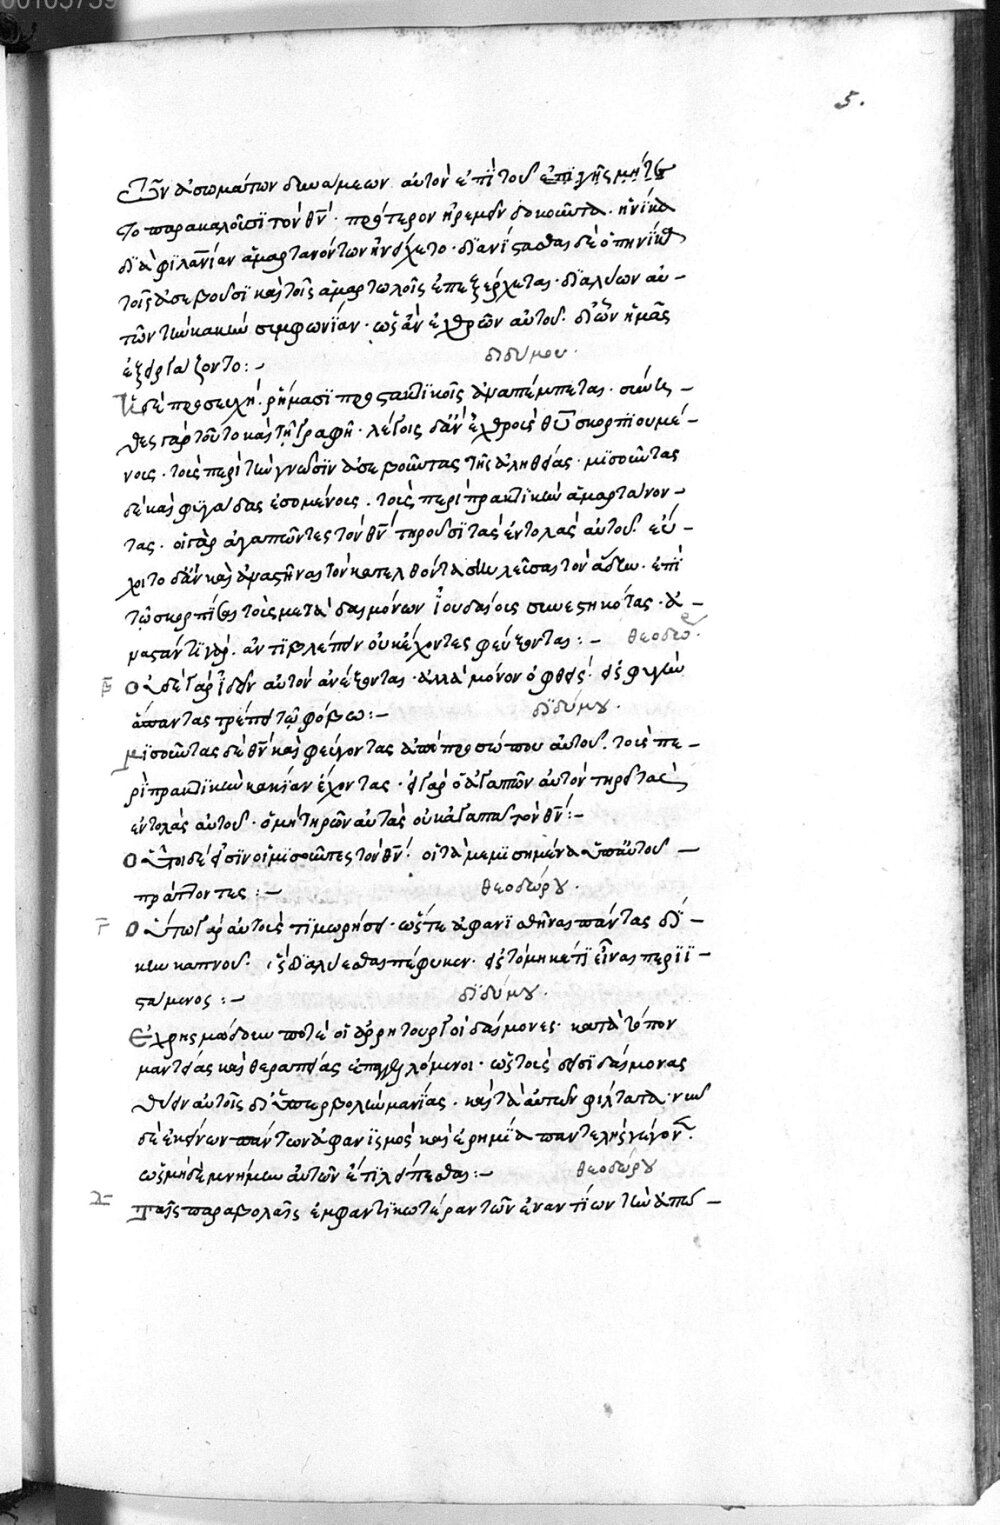 5.
Τῶν ἀσωμάτων δυνάμεων αὐτὸν ἐπὶ τοῦ
το παρακαλοῦσι τὸν θν̄· πρότερον ἠρεμεῖν δοκοῦντα· ἡνίκα
διὰ φιλανίαν ἁμαρτανόντων ἠνείχετο· διανίστασθαι δὲ ὁπηνίκα
τοῖς ἀσεβοῦσι καὶ τοῖς ἁμαρτωλοῖς ἐπεξέρχεται· διαλύων αὐ-
τῶν τὴν κακὴν συμφωνίαν· ὡς ἂν ἐχθρῶν αὐτοῦ· δι' ὧν ἡμᾶς
ἐξειργάζοντο:-
διδύμου·
Ἡ δὲ προσευχὴ· ῥήμασι προστακτικοῖς ἀναπέμπεται· σύνη-
θες γὰρ τοῦτο καὶ τῇ γραφῇ· λέγοις δ' ἂν ἐχθροὺς θῡ σκορπιουμέ-
νους· τοὺς περὶ τὴν γνῶσιν ἀσεβοῦντας τῆς ἀληθείας· μισοῦντας
δὲ καὶ φυγάδας ἐσομένους· τοὺς περὶ πρακτικὴν ἁμαρτάνον-
τας· οἱ γὰρ ἀγαπῶντες τὸν θν̄ τηροῦσι τὰς ἐντολὰς αὐτοῦ· εὔ-
χοιτο δ' ἂν καὶ ἀναστῆναι τὸν κατελθόντα σκυλεῦσαι τὸν ἅδην· ἐπὶ
τῷ σκορπίσαι τοὺς μετὰ δαιμόνων ἰουδαίους συνεστηκότας·
ἀντιβλέπειν οὐκ ἔχοντες φεύξονται:-
θεοδώρου·
β̄ Οὐδὲ γὰρ ἰδεῖν αὐτὸν ἀνέξονται· ἀλλὰ μόνον ὀφθεὶς· εἰς φυγὴν
ἅπαντας τρέπει τῷ φόβῳ:-
διδύμου·
Μισοῦντας δὲ θν̄ καὶ φεύγοντας ἀπὸ προσώπου αὐτοῦ· τοὺς πε-
ρὶ πρακτικὴν κακίαν ἔχοντας· εἰ γὰρ ὁ ἀγαπῶν αὐτὸν τηρεῖ τὰς
ἐντολὰς αὐτοῦ· ὁ μὴ τηρῶν αὐτὰς οὐκ ἀγαπᾷ τὸν θν̄:-
Οὗτοι δέ εἰσιν οἱ μισοῦντες τὸν θν̄· οἱ τὰ μεμισημένα ὑπ' αὐτοῦ -
πράττοντες:-
θεοδώρου·
γ̄ Οὕτω γὰρ αὐτοὺς τιμωρήσει· ὥστε ἀφανισθῆναι πάντας δί-
κην καπνοῦ· ὃς διαλύεσθαι πέφυκεν· εἰς τὸ μηκέτι εἶναι περιϊ-
στάμενος:-
διδύμου·
Ἐχρησμῴδουν ποτὲ οἱ ἀρρητουργοὶ δαίμονες· κατὰ τόπον
μαντείας καὶ θεραπείας ἐπαγγελλόμενοι· ὡς τοὺς δεισιδαίμονας
θύειν αὐτοῖς δι' ὑπερβολὴν μανίας· καὶ τὰ αὐτῶν φίλτατα· νῦν
δὲ ἐκείνων πάντων ἀφανισμὸς καὶ ἐρημία παντελὴς γέγονεν·
ὡς μηδὲ μνήμην αὐτῶν ἔτι λείπεσθαι:-
θεοδώρου
δ̄ Ταῖς παραβολαῖς ἐμφαντικωτέραν τῶν ἐναντίων τὴν ἀπώ-